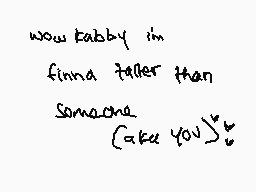 wow kabby im
finna taller than
someone
(aka you)